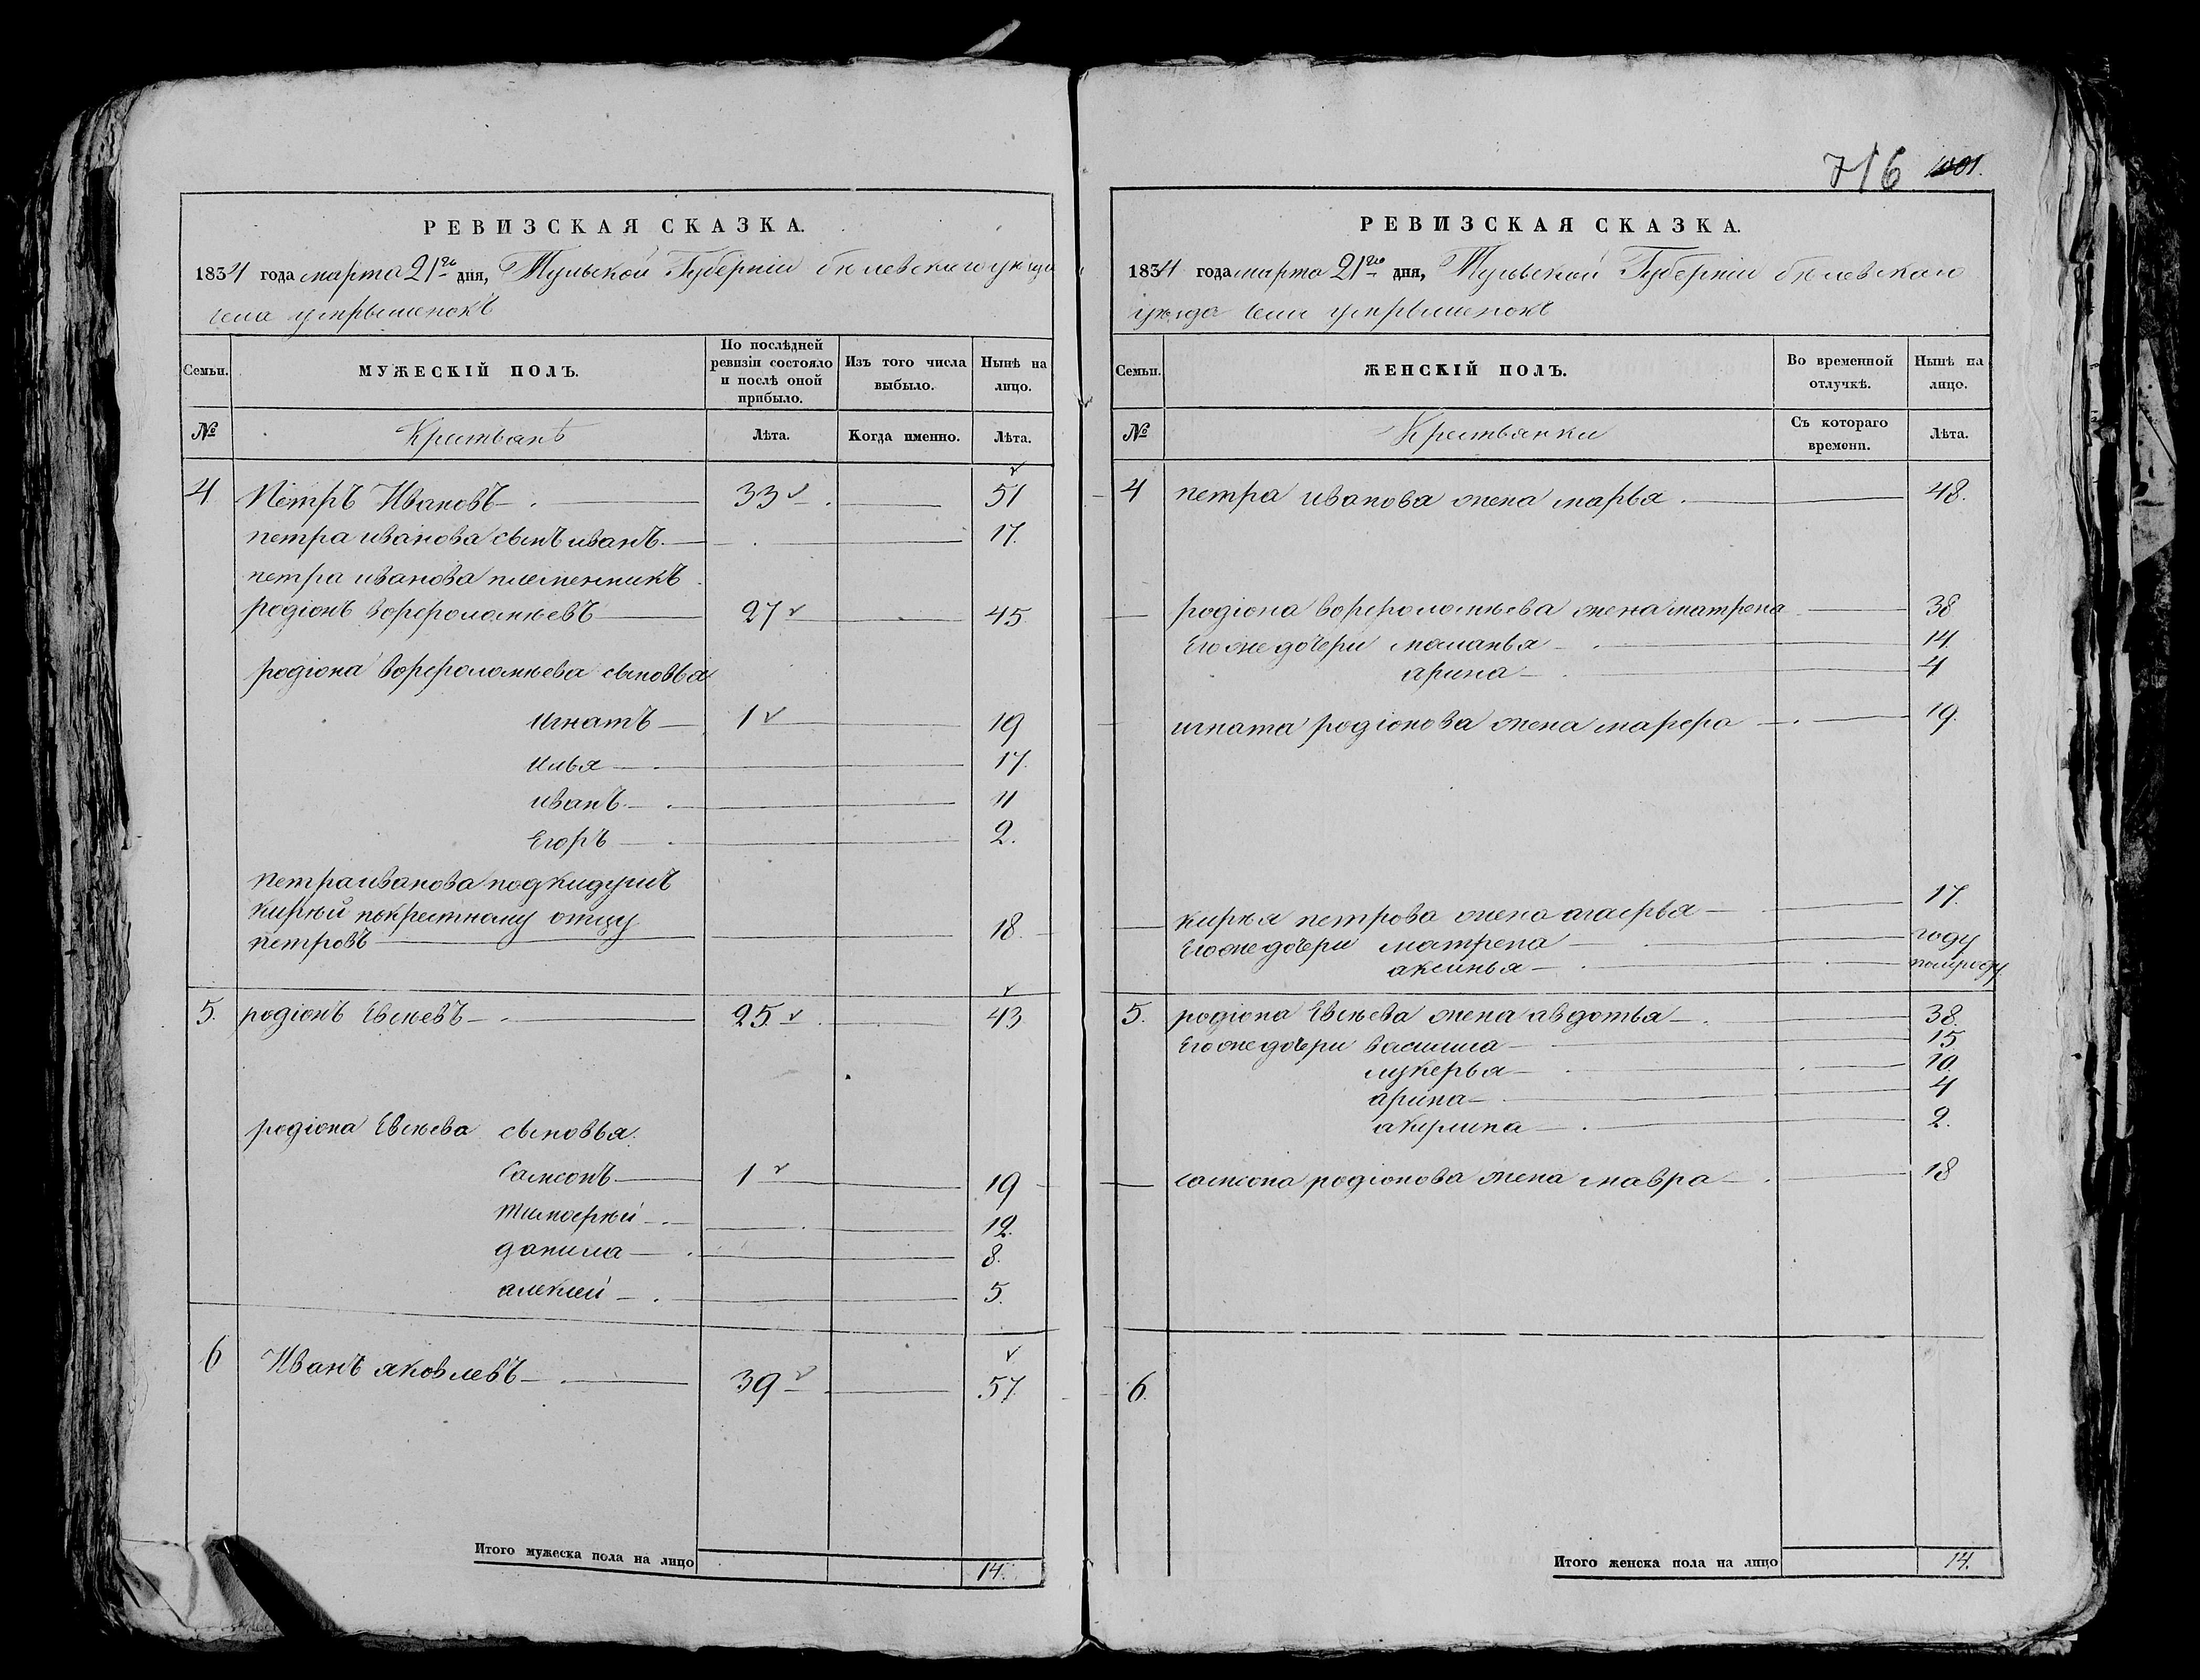 РЕВИЗСКАЯ СКАЗКА.
1834 года марта 21го дня, Тульской Губерніи бѣлевскаго уѣзда
села
Семьи.
МУЖЕСКІЙ ПОЛЪ.
По послѣдней ревизіи состояло и послѣ оной прибыло.
Изъ того числа выбыло.
Нынѣ на лицо.
№
Крестьянѣ
Лѣта.
Когда именно.
Лѣта.
4 Петръ Ивановъ 33 51
петра иванова сынъ иванъ 17.
петра иванова племенникъ
родіонъ ворфоломѣевъ 27 45
родіона ворфоломѣева сыновья
Игнатъ 1 19
илья 17.
иванъ 4
Егоръ 2.
петра иванова подкидушъ
кирѣй покрестному отцу
петровъ 18.
5. родіонъ Евсѣевъ 25. 43
родіона Евсѣева сыновья:
Самсонъ 1 19
тимофѣй 12.
данила 8.
алексей 5.
6 Иванъ яковлевъ 39 57.
Итого мужеска пола на лицо 14.
716 1001.
РЕВИЗСКАЯ СКАЗКА.
1834 года марта 21го дня, Тульской Губерніи бѣлевскаго
уѣзда села
Семьи.
ЖЕНСКІЙ ПОЛЪ.
Во временной отлучкѣ.
Нынѣ на лицо.
№
Крестьянки
Съ котораго времени.
Лѣта.
4 петра иванова жена марья 48.
родіона ворфоломѣева жена матрена 38
Егоже дочери маланья 14.
арина 4
игната родіонова жена марфа 19.
кирѣя петрова жена агафья 17.
Егоже дочери матрена году
аксинья полугоду
5. родіона Евсѣева жена авдотья 38.
Егоже дочери василиса 15
лукерья 10.
арина 4
акулина 2.
самсона родіонова жена мавра 18
6.
Итого женска пола на лицо 14.